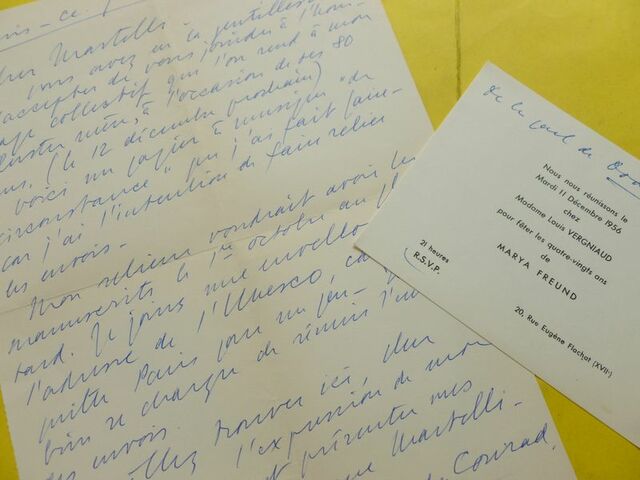 cher Martelli -
vous avez eu la gentillesse
d'accepter de vous joindre à l'hom-
age collectif que l'on rend à mon
illustre mère, à l'occasion de ses 80
ans. (le 12 décembre prochain)
voici un papier à musique "de
circonstance" que j'ai fait faire
car j'ai l'intention de faire relier
les envois.
Mon relieur voudrait avoir les
manuscrits le 1er octobre au
tard. Je joins une envelo
l'adresse de l'Unesco, ca
quitter Paris pour un
bien se charge de réunir
les envois.
trouver ici, cher
l'expression de mon
et présenter mes
Martelli -
Conrad.
de la part de
Nous nous réunissons le
Mardi 11 Décembre 1956
chez
Madame Louis VERGNIAUD
pour fêter les quatre-vingts ans
de
MARYA FREUND
21 heures
R.S.V.P.
20, Rue Eugène Flachat (XVIIe)